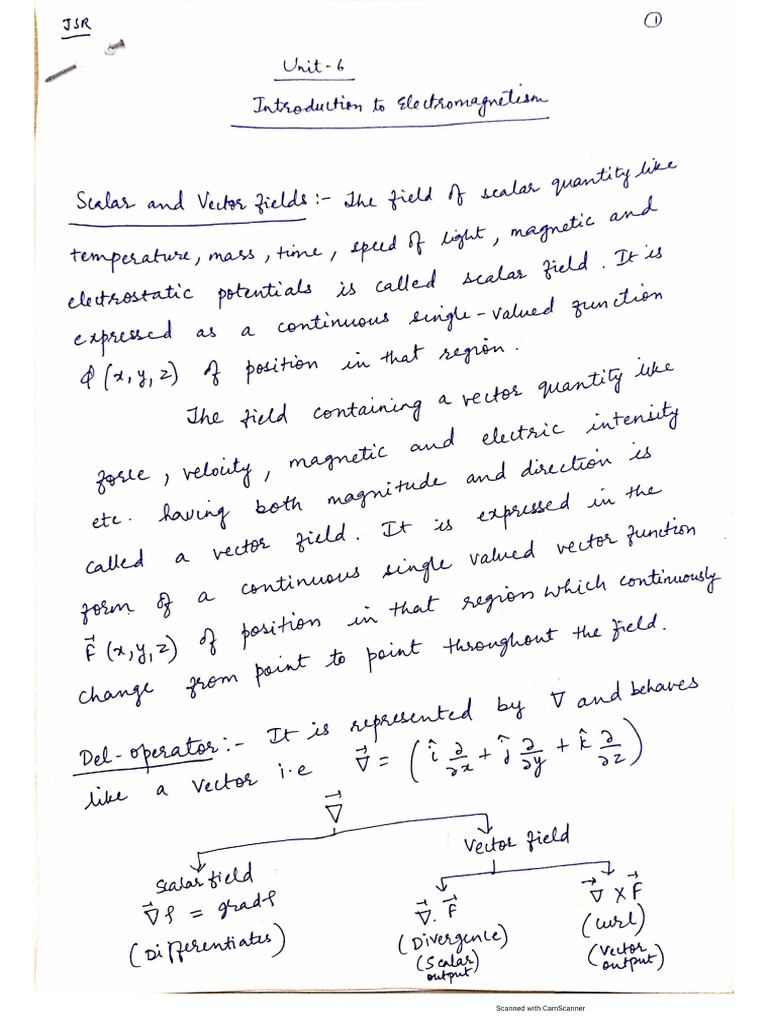 JSR
1
Unit-6
Introduction to Electromagnetism
Scalar and Vector fields :- The field of scalar quantity like
temperature, mass, time, speed of light, magnetic and
electrostatic potentials is called scalar field. It is
expressed as a continuous single-valued function
ϕ(x,y,z) of position in that region.
The field containing a vector quantity like
force, velocity, magnetic and electric intensity
etc. having both magnitude and direction is
called a vector field. It is expressed in the
form of a continuous single valued vector function
F⃗ (x,y,z) of position in that region which continuously
change from point to point throughout the field.
Del-operator :- It is represented by ∇ and behaves
like a vector i.e ∇⃗ = (î ∂/∂x + ĵ ∂/∂y + k̂ ∂/∂z)
∇⃗
Scalar field
Vector field
∇⃗f = gradf
(Differentiates)
∇⃗. F⃗
(Divergence)
(Scalar
output)
∇⃗ X F⃗
(Curl)
(Vector
output)
Scanned with CamScanner